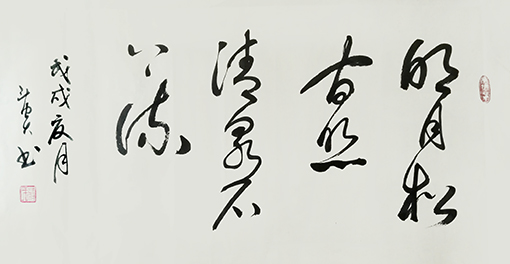 明月松
间照
清泉石
上流
戊戌夏月
书